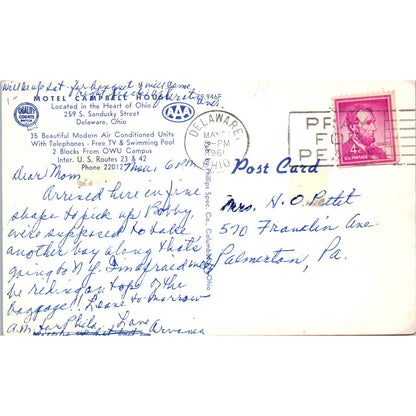 Will be up Sat. for banquet & will come
MOTEL CAMPBELL HOUSE
Located in the Heart of Ohio
259 S. Sandusky Street
Delaware, Ohio
35 Beautiful Modern Air Conditioned Units
With Telephones - Free TV & Swimming Pool
2 Blocks From OWU Campus
Inter. U. S. Routes 23 & 42
Phone 22012
QUALITY
COURTS
AAA
Thur. 6 P.M.
Dear Mom,
Arrived here in fine
shape to pick up Bobby,
were supposed to take
another boy along that's
going to N.J. I'm afraid we'll
be riding on top of the
baggage!! Leave tomorrow
A.M. for Phila. Love
Arvania
Pub. by Phillips Spec. Co., Columbus, Ohio
DELAWARE,
MAY
PM
1961
OHIO
PR
FO
PE
4¢
U.S. POSTAGE
Post Card
Mrs. H. O. Pettit
570 Franklin Ave.
Palmerton, Pa.